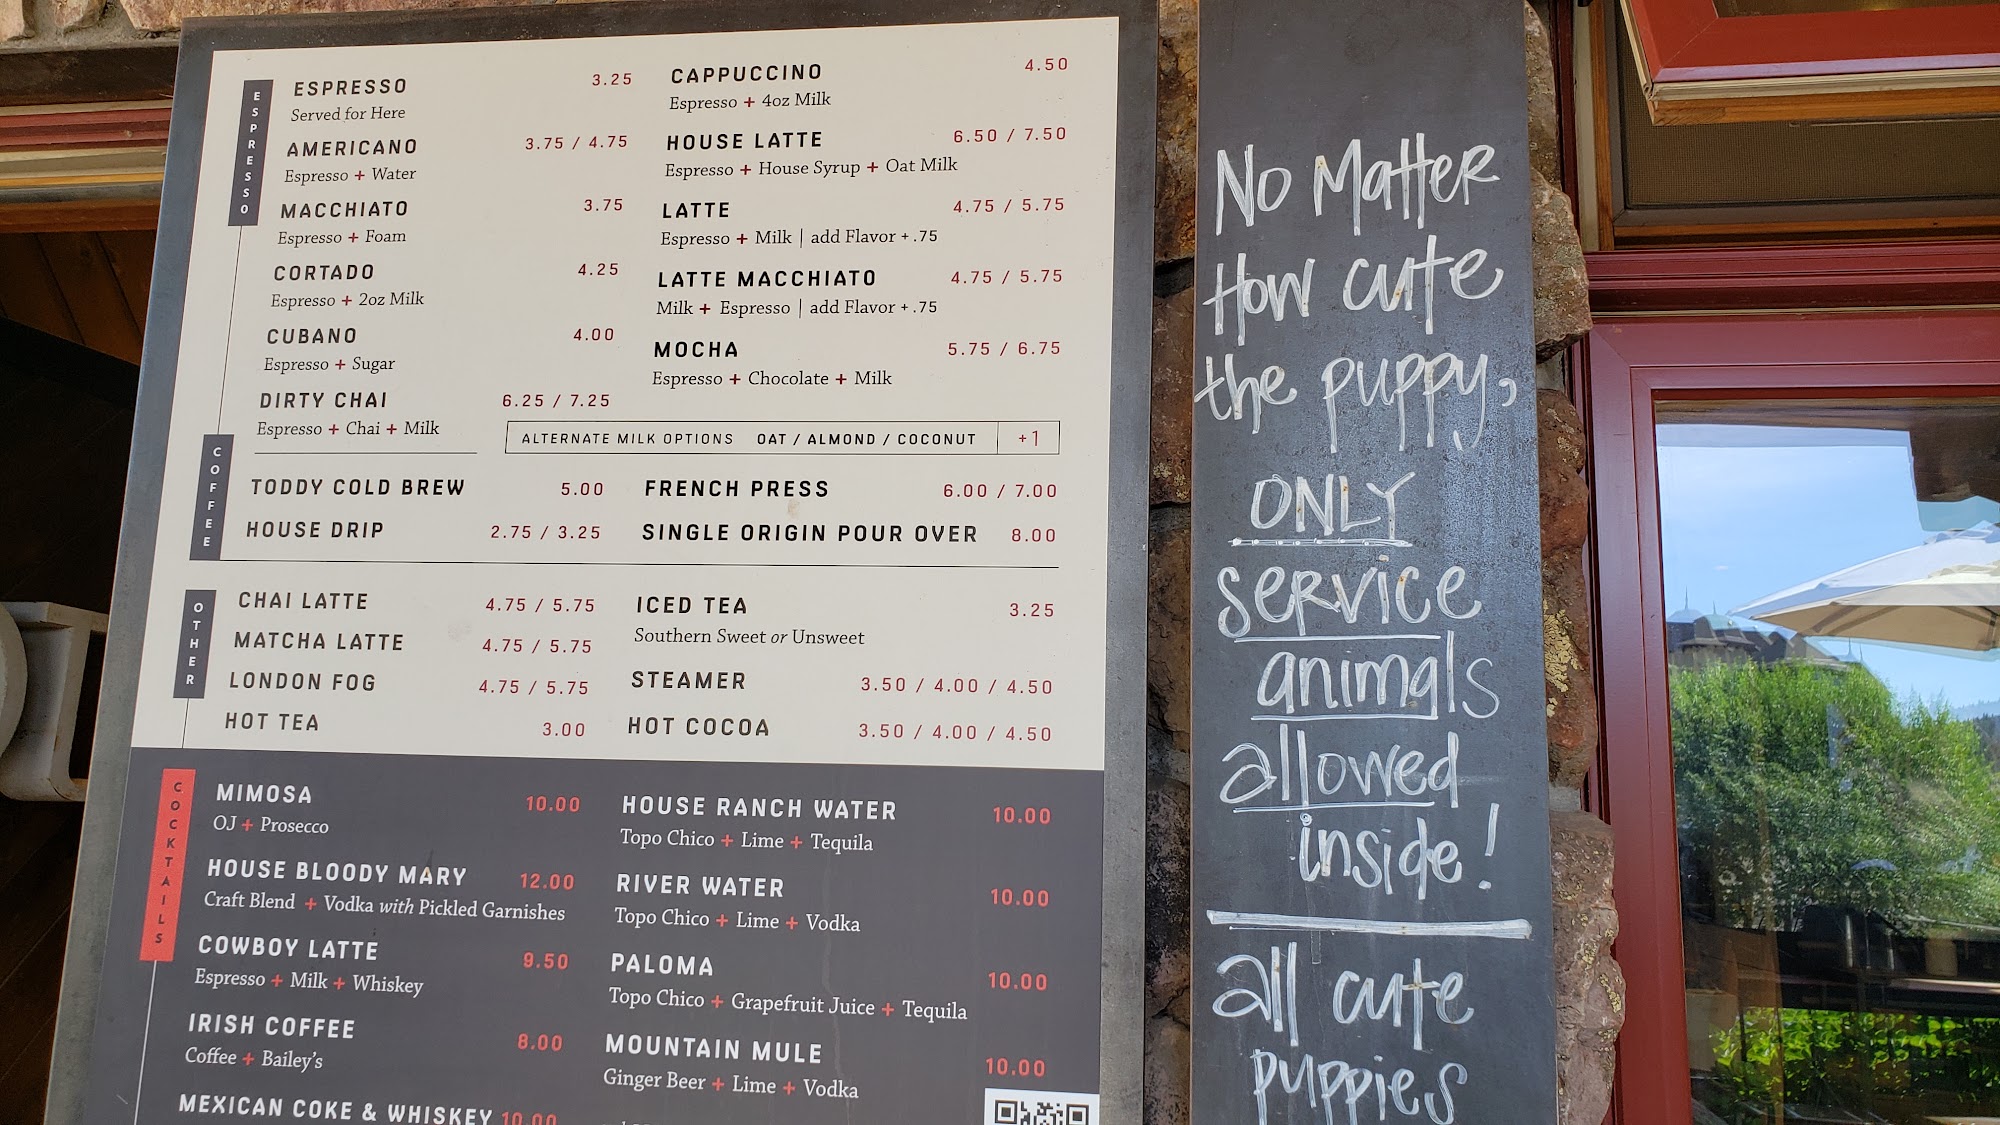 ESPRESSO
ESPRESSO 3.25
Served for Here
AMERICANO 3.75 / 4.75
Espresso + Water
MACCHIATO 3.75
Espresso + Foam
CORTADO 4.25
Espresso + 2oz Milk
CUBANO 4.00
Espresso + Sugar
DIRTY CHAI 6.25 / 7.25
Espresso + Chai + Milk
CAPPUCCINO 4.50
Espresso + 4oz Milk
HOUSE LATTE 6.50 / 7.50
Espresso + House Syrup + Oat Milk
LATTE 4.75 / 5.75
Espresso + Milk | add Flavor +.75
LATTE MACCHIATO 4.75 / 5.75
Milk + Espresso | add Flavor +.75
MOCHA 5.75 / 6.75
Espresso + Chocolate + Milk
ALTERNATE MILK OPTIONS OAT / ALMOND / COCONUT +1
COFFEE
TODDY COLD BREW 5.00
HOUSE DRIP 2.75 / 3.25
FRENCH PRESS 6.00 / 7.00
SINGLE ORIGIN POUR OVER 8.00
OTHER
CHAI LATTE 4.75 / 5.75
MATCHA LATTE 4.75 / 5.75
LONDON FOG 4.75 / 5.75
HOT TEA 3.00
ICED TEA 3.25
Southern Sweet or Unsweet
STEAMER 3.50 / 4.00 / 4.50
HOT COCOA 3.50 / 4.00 / 4.50
COCKTAILS
MIMOSA 10.00
OJ + Prosecco
HOUSE BLOODY MARY 12.00
Craft Blend + Vodka with Pickled Garnishes
COWBOY LATTE 9.50
Espresso + Milk + Whiskey
IRISH COFFEE 8.00
Coffee + Bailey's
MEXICAN COKE & WHISKEY 10.00
HOUSE RANCH WATER 10.00
Topo Chico + Lime + Tequila
RIVER WATER 10.00
Topo Chico + Lime + Vodka
PALOMA 10.00
Topo Chico + Grapefruit Juice + Tequila
MOUNTAIN MULE 10.00
Ginger Beer + Lime + Vodka
No Matter
How cute
the puppy,
ONLY
service
animals
allowed
inside!
all cute
puppies